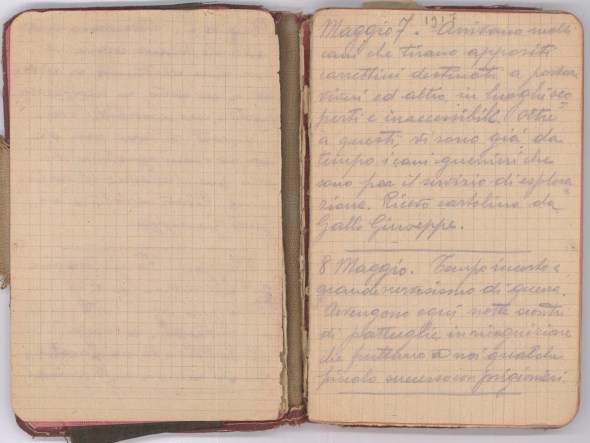 1917
Maggio 7. Arrivano molti
cani che tirano appositi
carrettini destinati a portar
viveri ed altro, in luoghi sco=
perti e inaccessibili. Oltre
a questi, vi sono già da
tempo i cani guerrieri che
sono per il servizio di esplora=
zione. Ricevo cartolina da
Gallo Giuseppe.
8 Maggio. Tempo incerto e
grande nervosismo di guerra.
Avvengono ogni notte scontri
di pattuglie in ricognizione
che portano a noi qualche
piccolo successo con prigionieri.